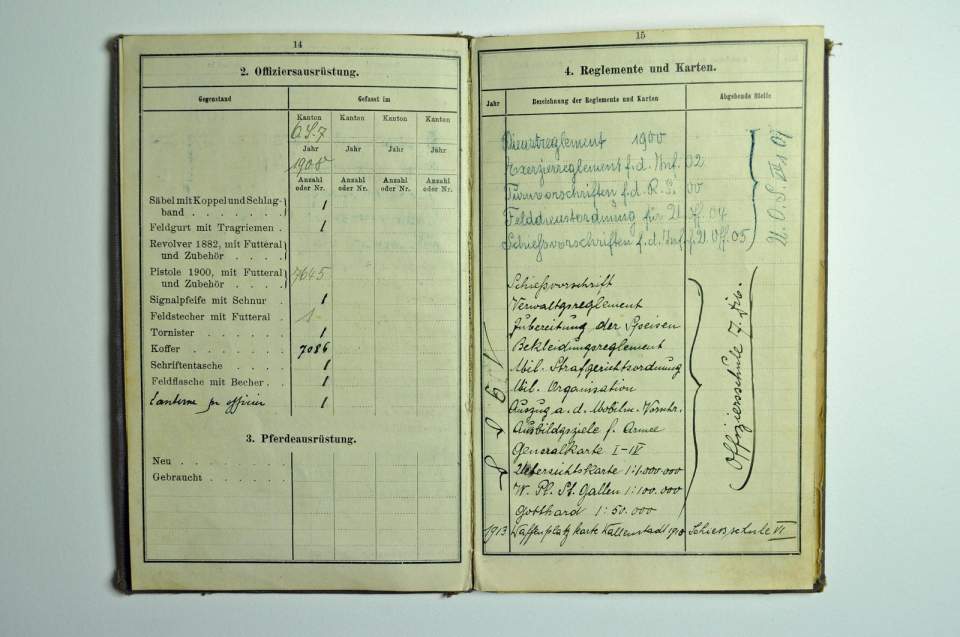 14
2. Offiziersausrüstung.
Gegenstand
Gefasst im
Kanton Kanton Kanton Kanton
O.S. 7
Jahr Jahr Jahr Jahr
1908
Anzahl oder Nr. Anzahl oder Nr. Anzahl oder Nr. Anzahl oder Nr.
Säbel mit Koppel und Schlag-
band . . . . . . 1
Feldgurt mit Tragriemen . 1
Revolver 1882, mit Futteral
und Zubehör . . . .
Pistole 1900, mit Futteral
und Zubehör . . . . 7645
Signalpfeife mit Schnur . 1
Feldstecher mit Futteral . 1
Tornister . . . . . 1
Koffer . . . . . . 7086
Schriftentasche . . . . 1
Feldflasche mit Becher . . 1
Lanterne pr officier 1
3. Pferdeausrüstung.
Neu . . . . . . .
Gebraucht . . . . .
15
4. Reglemente und Karten.
Jahr
Bezeichnung der Reglemente und Karten
Abgebende Stelle
Dienstreglement 1900
Exerzierreglement f. d. Inf. 02
Turnvorschriften f. d. R. 00
Felddienstordnung für U. Of. 04
Schießvorschriften f. d. Inf. f. U. Off. 05
U.O.S. 07
Schießvorschrift
Verwaltgsreglement
Zubereitung der Speisen
Bekleidungsreglement
Mil. Strafgerichtsordnung
Mil. Organisation
Auszug a. d. Mobilm. Vorschr.
Ausbildgsziele f. Armee
Generalkarte I-IV
Übersichtskarte 1:1.000.000
W. Pl. St. Gallen 1:100.000
Gotthard 1:50.000
Offiziersschule 7. Div.
1913 Waffenplatzkarte Wallenstadt 1910 Schiessschule VI